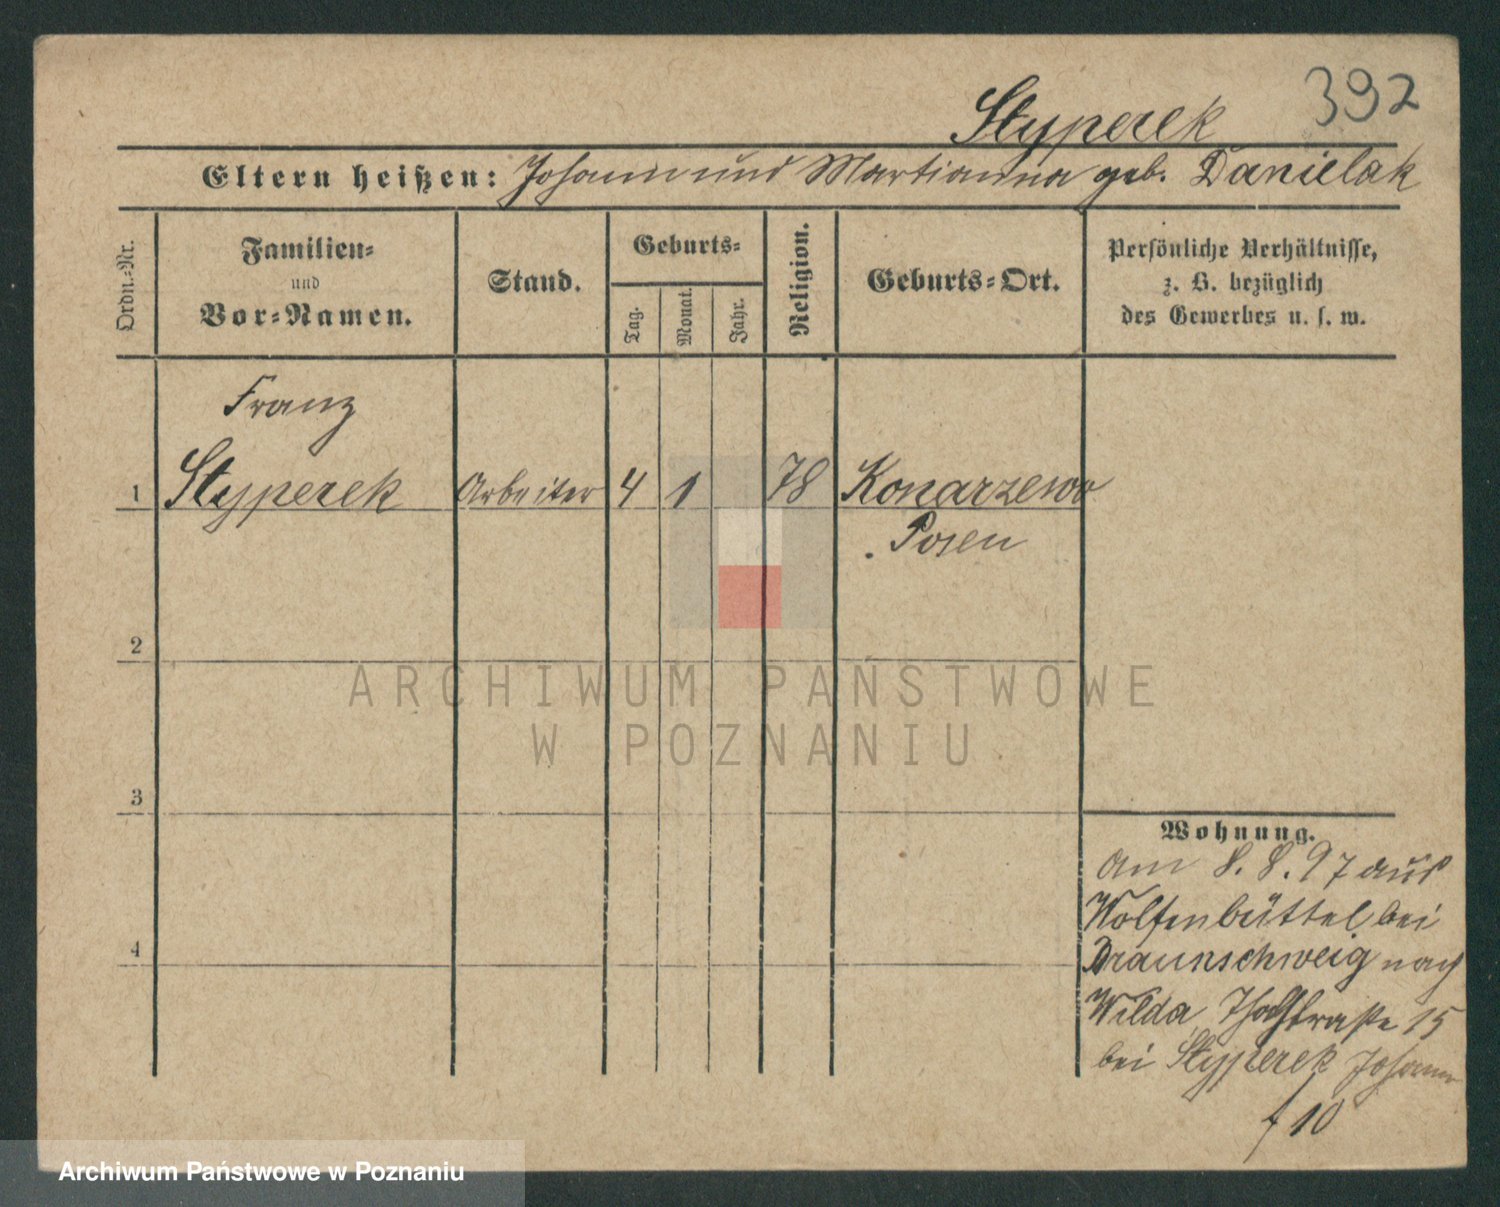 392
Styperek
Eltern heißen: Johann und Martianna geb. Danielak
Ordn.-Nr.
Familien-
und
Vor-Namen.
Stand.
Geburts-
Tag.
Monat.
Jahr.
Religion.
Geburts-Ort.
Persönliche Verhältnisse,
z. B. bezüglich
des Gewerbes u. s. w.
Franz
1 Styperek Arbeiter 4 1 78 Konarzewo
Posen
2
3
4
Wohnung.
Am 8. 8. 97 aus
Wolfenbüttel bei
Braunschweig nach
Wilda, 15
bei Styperek Johann
f 10
ARCHIWUM PAŃSTWOWE
W POZNANIU
Archiwum Państwowe w Poznaniu